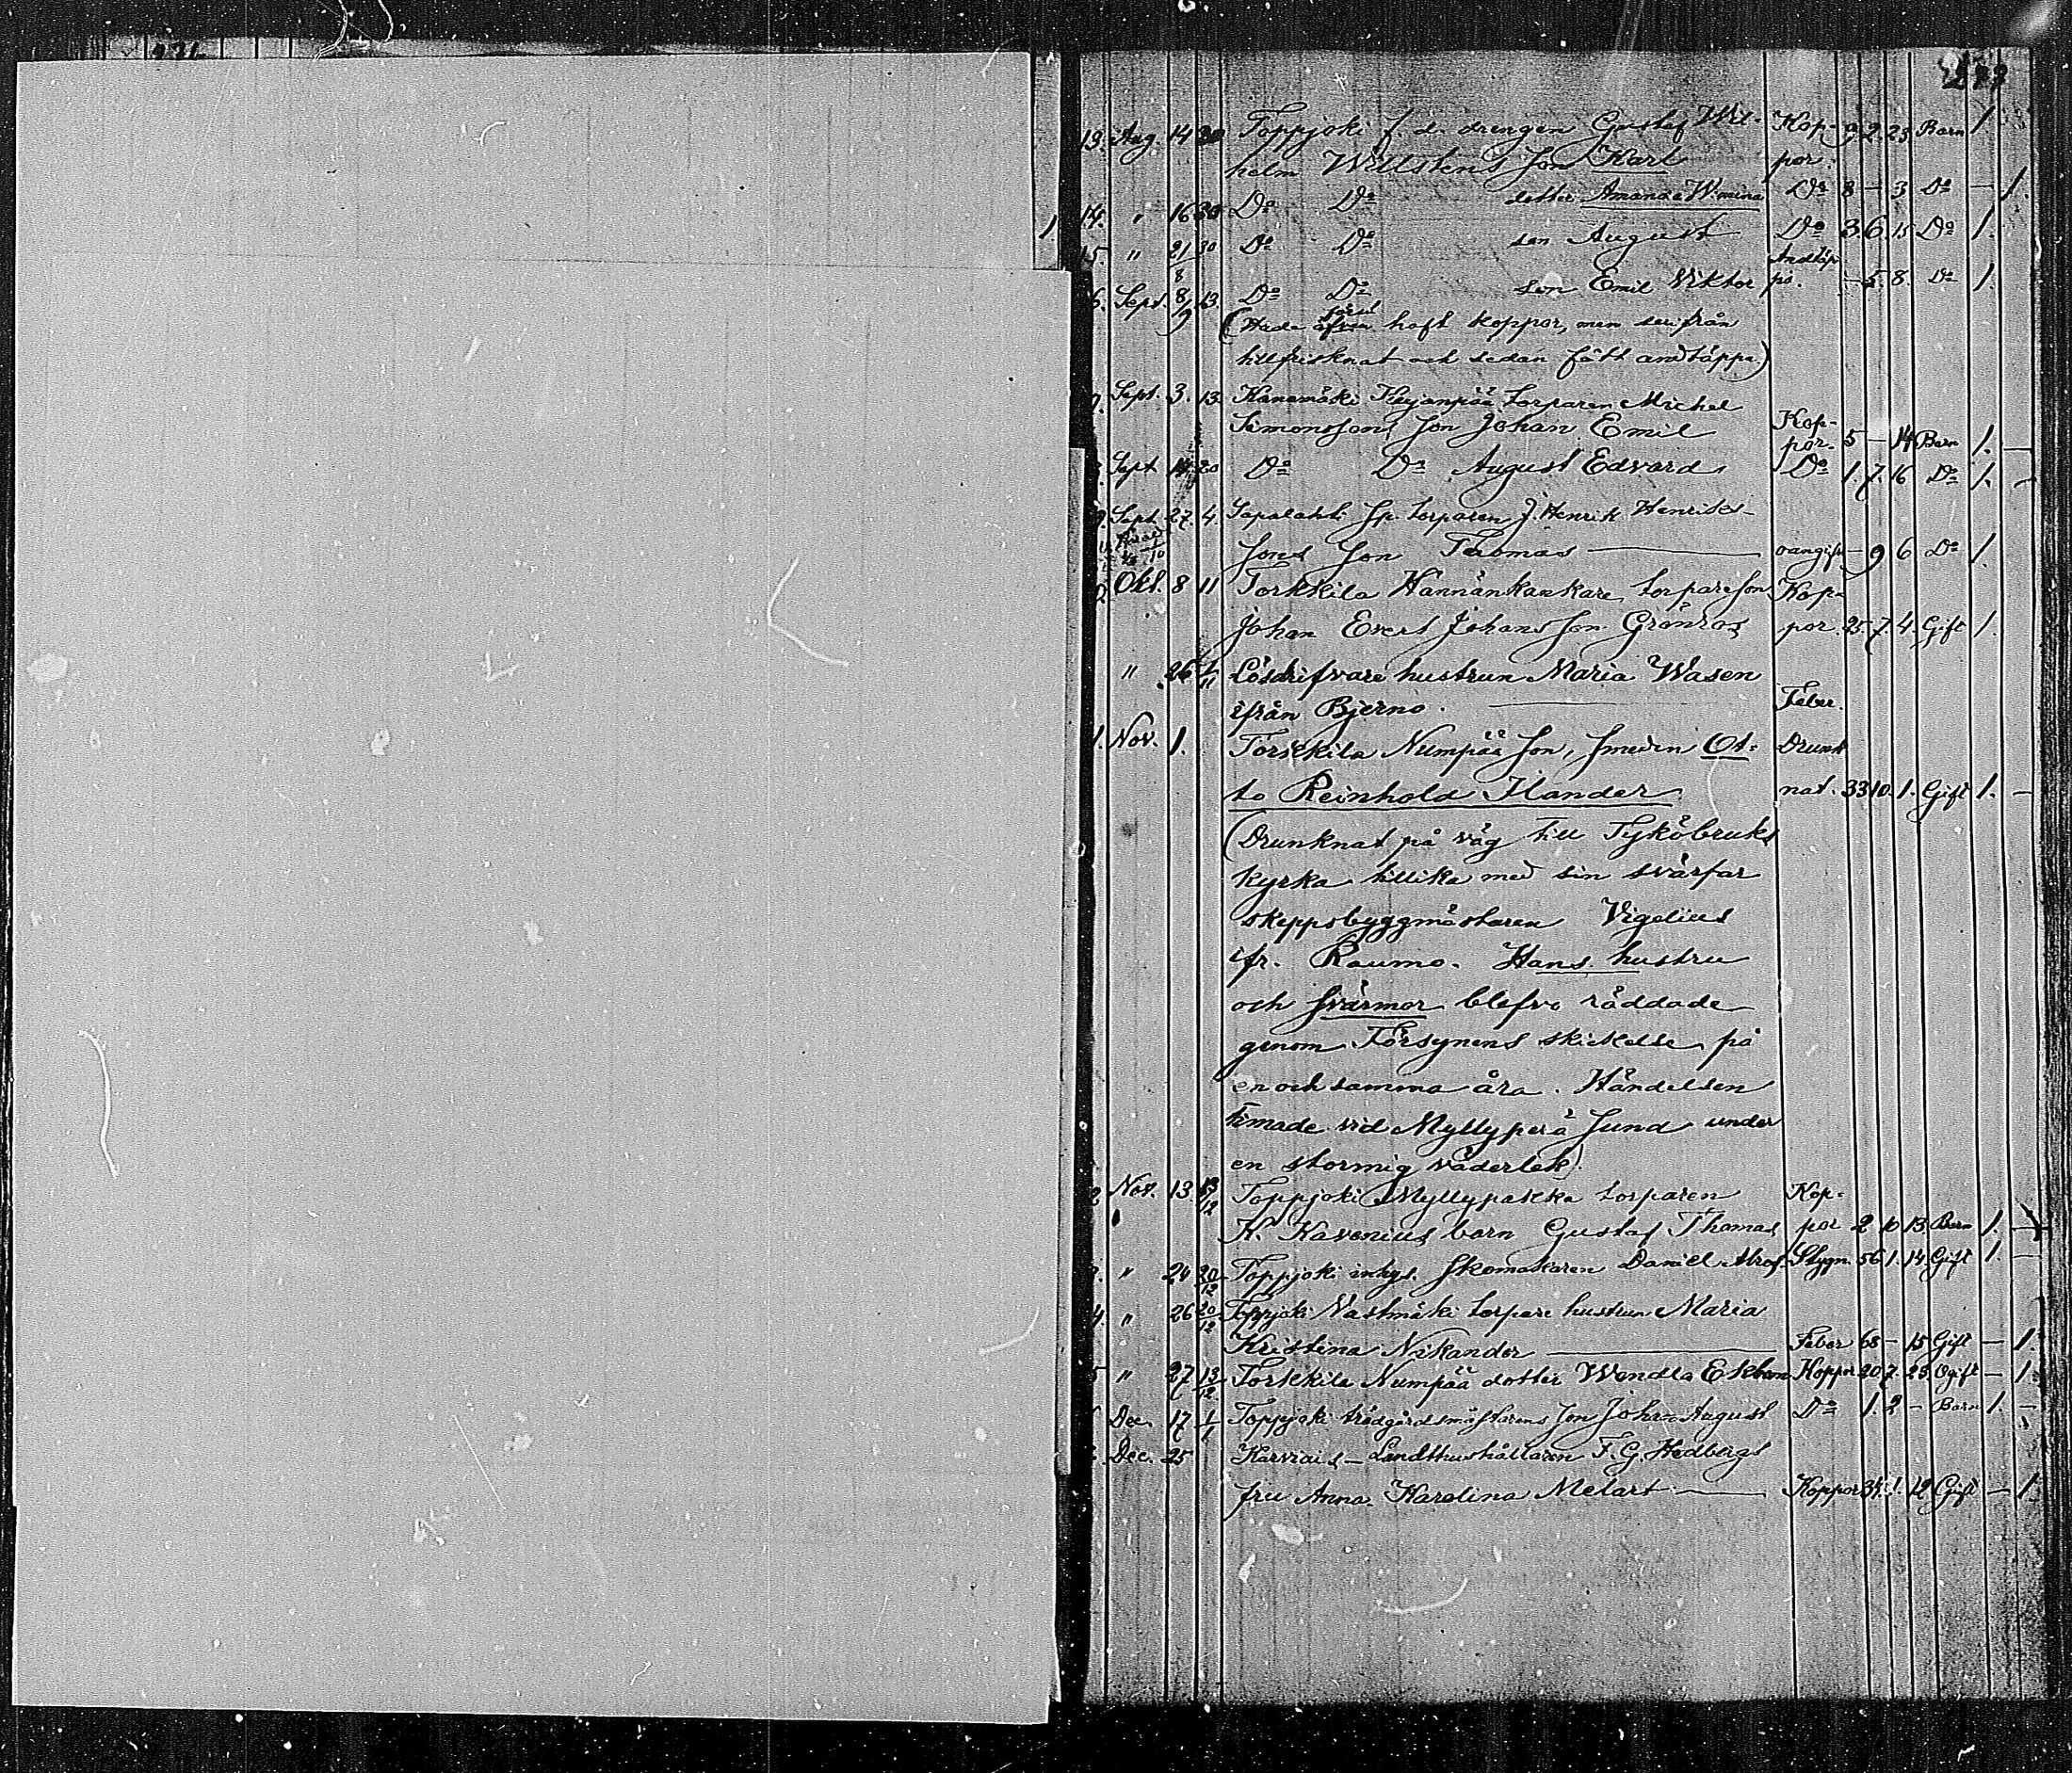 277
13. Aug. 14 30 Toppjoki f. d. drengen Gustaf Wil- Kop- 9 2 23 Barn 1.
helm Willstens Son Karl por.
14. " 16 30 Do Do dotter Amanda W:mina Do 8 – 3 Do – 1.
15. " 21 30/8 Do Do son August Do 3 6 15 Do 1.
Andtäp-
6. Sept. 8 13/9 Do Do son Emil Viktor pa. – 5 8. Do 1.
(Hade äfven haft koppor, men derifrån
tillfrisknat och sedan fått andtäppa)
7. Sept. 3. 13. Kanamäki Keijanpää torparen Michel
Simonsons Son Johan Emil Kop-
por. 5 – 14 Barn 1. –
Sept 14 20 Do Do August Edvard Do 1. 7. 16 Do 1. –
9 Sept. 27. 4. Sapalahti torparen J. Henrik Henriks-
Sons Son Thomas — oangifv. – 9 6 Do 1.
Okt. 8 11 Torkkila Hannänkankare torpareson Kop-
Johan Evert Johansson Grönros por. 25. 7. 4. Gift 1.
" 26 1/11 Lösdrifvare hustrun Maria Wasen
ifrån Bjerno. — Feber.
1. Nov. 1. Torkkila Numpää Son, Smeden Ot- Drunk
to Reinhold Ilander nat. 33 10. 1. Gift 1. –
(Drunknat på väg till Tykö bruks
kyrka tillika med sin svärfar
skeppsbyggmästaren Vigelius
ifr. Raumo. Hans hustru
och Svärmor blefvo räddade
genom Försynens skickelse på
en och samma åra. Händelsen
timade vid Myllyperä Sund under
en stormig väderlek).
2 Nov. 13. 13/12 Toppjoki Myllypakka torparen Kop-
K. Kavenius barn Gustaf Thomas por 2 10 13. Barn 1. –
3. " 24 20/12 Toppjoki inhys. Skomakaren Daniel Stygn. 56 1. 14. Gift 1. –
4. " 26 20/12 Toppjoki Nastmäki torpare hustrun Maria
Kristina Nikander — Feber 68 – 15 Gift – 1.
5 " 27 13/12 Torkkila Numpää dotter Wendla Ekbom Koppor 20 7. 28 Ogift – 1
Dec. 17 1/1 Toppjoki trädgårdsmästarens Son Johan August Do 1. 2 – Barn 1. –
Dec. 25 Karviais – Landthushållaren F. G. Hedbergs
fru Anna Karolina Melart — Koppor 34. 1. 12 Gift – 1
1.